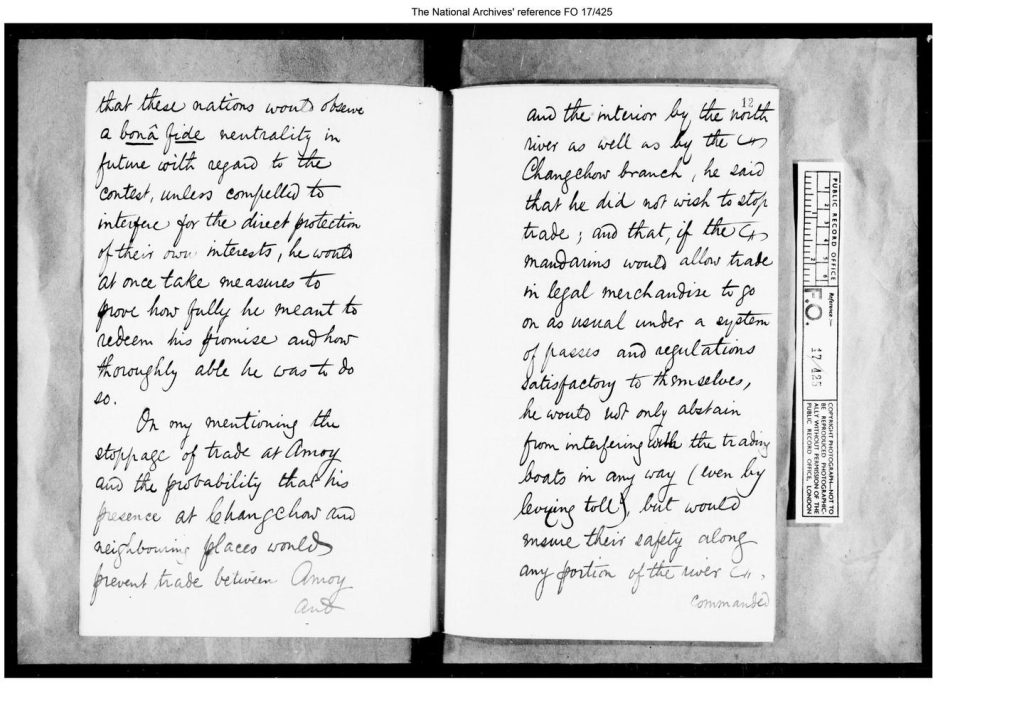 The National Archives' reference FO 17/425
that these nations would observe
a bonâ fide neutrality in
future with regard to the
contest, unless compelled to
interfere for the direct protection
of their own interests, he would
at once take measures to
prove how fully he meant to
redeem his promise and how
thoroughly able he was to do
so.
On my mentioning the
stoppage of trade at Amoy
and the probability that his
presence at Changchow and
neighbouring places would
prevent trade between Amoy
and
12
and the interior by the north
river as well as by the
Changchow branch, he said
that he did not wish to stop
trade; and that, if the
mandarins would allow trade
in legal merchandise to go
on as usual under a system
of passes and regulations
satisfactory to themselves,
he would not only abstain
from interfering with the trading
boats in any way (even by
levying toll), but would
ensure their safety along
any portion of the river
commanded
PUBLIC RECORD OFFICE
1 2 3 4 5 6
Reference:-
F.O. 17/425
COPYRIGHT PHOTOGRAPH—NOT TO
BE REPRODUCED PHOTOGRAPHIC-
ALLY WITHOUT PERMISSION OF THE
PUBLIC RECORD OFFICE, LONDON